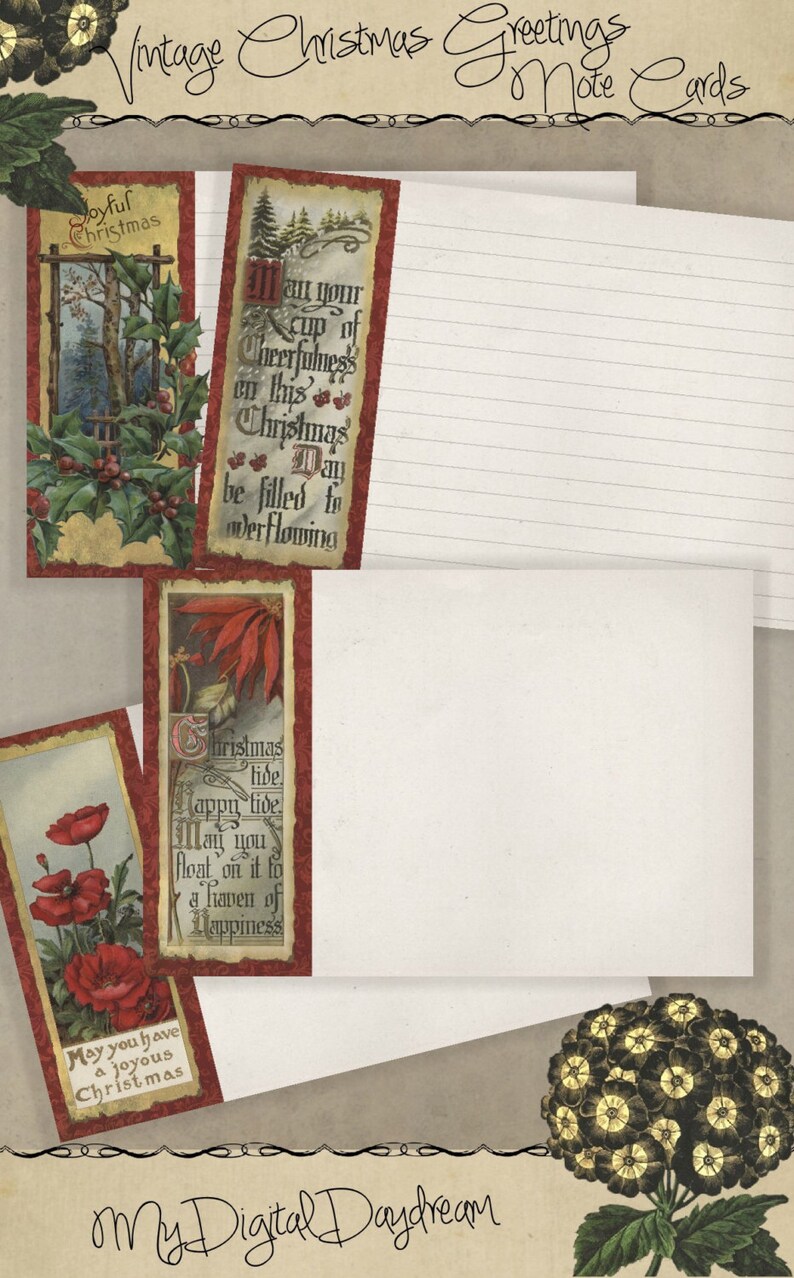 Vintage Christmas Greetings
Note Cards
Joyful
Christmas
May your
cup of
Cheerfulness
on this
Christmas
Day
be filled to
overflowing
Christmas
tide.
Happy tide.
May you
float on it to
a haven of
Happiness
May you have
a joyous
Christmas
MyDigitalDaydream